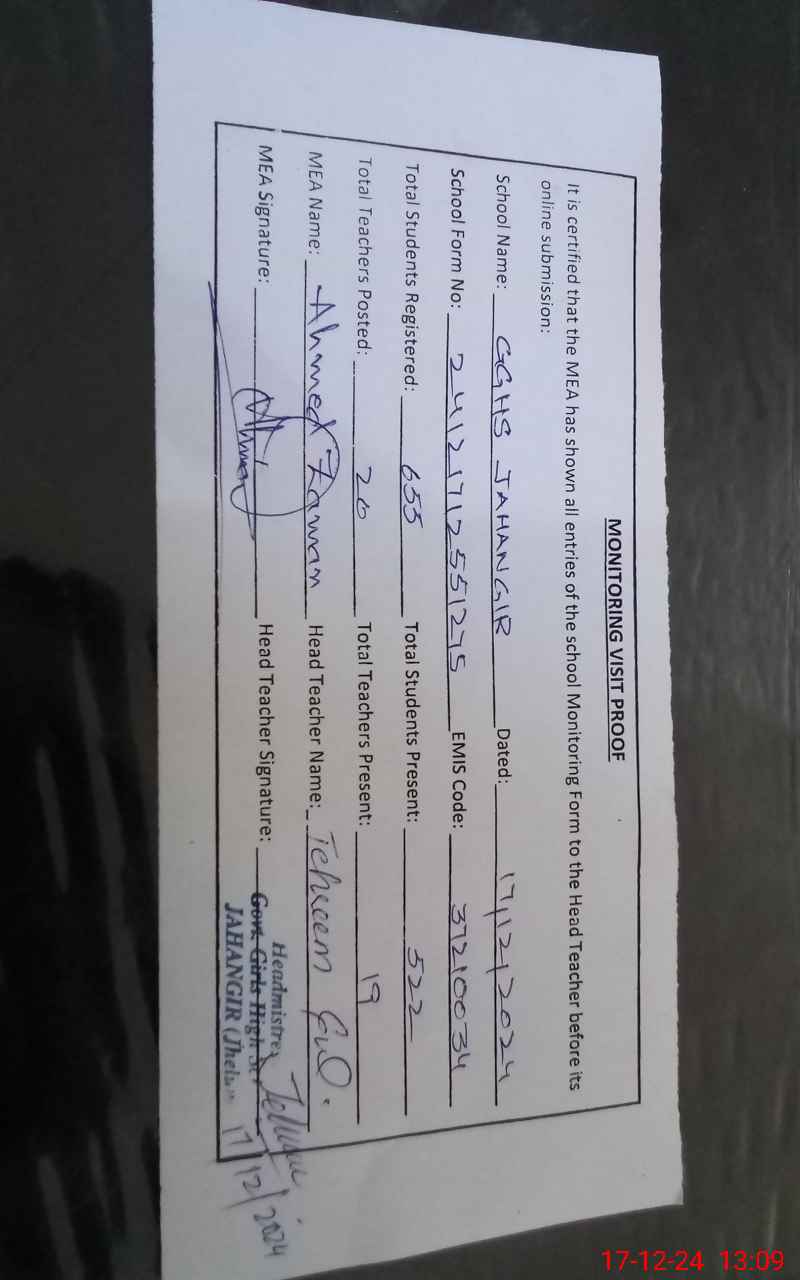 MONITORING VISIT PROOF
It is certified that the MEA has shown all entries of the school Monitoring Form to the Head Teacher before its
online submission:
School Name: GGHS JAHANGIR Dated: 17/12/2024
School Form No: 241217125551275 EMIS Code: 37210034
Total Students Registered: 655 Total Students Present: 522
Total Teachers Posted: 20 Total Teachers Present: 19
MEA Name: Ahmed Zaman Head Teacher Name: Tehreem Gul.
MEA Signature: Head Teacher Signature:
Headmistres
Govt. Girls High
JAHANGIR (Jhelum
17/12/2024
17-12-24 13:09